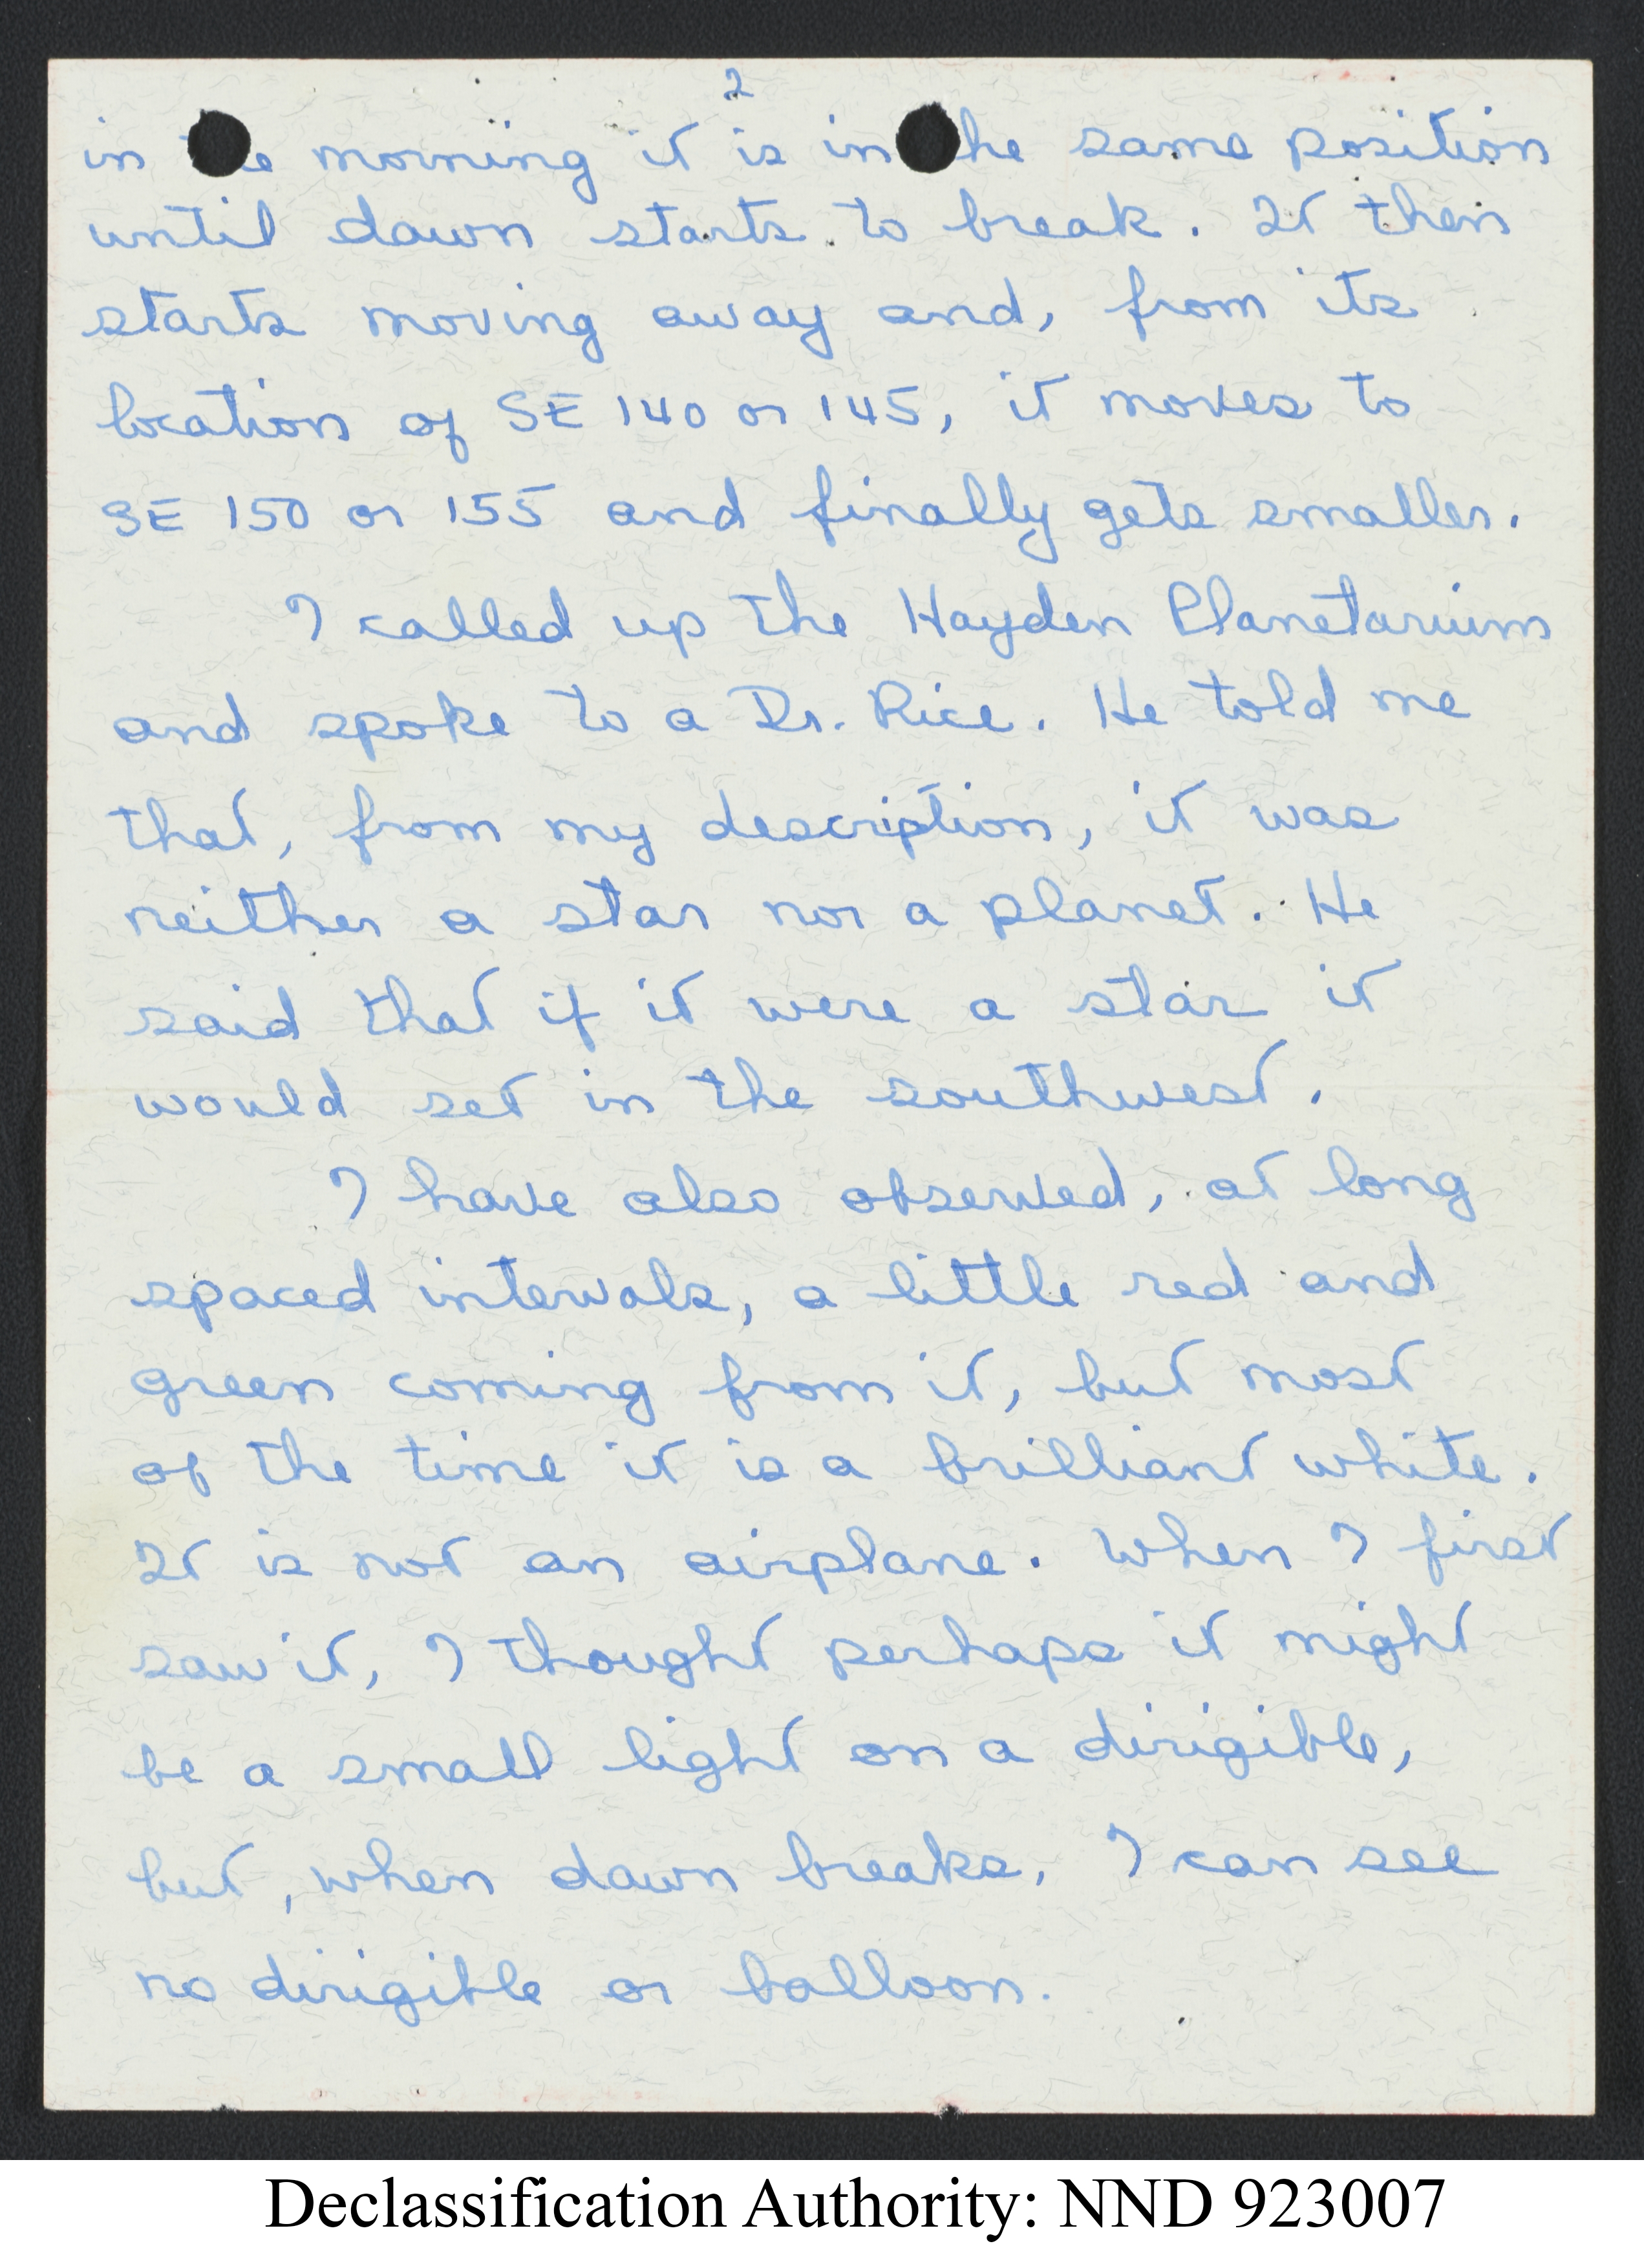 2
in the morning it is in the same position
until dawn starts to break. It then
starts moving away and, from its
location of SE 140 or 145, it moves to
SE 150 or 155 and finally gets smaller.
I called up the Hayden Planetarium
and spoke to a Dr. Rice. He told me
that, from my description, it was
neither a star nor a planet. He
said that if it were a star it
would set in the southwest.
I have also observed, at long
spaced intervals, a little red and
green coming from it, but most
of the time it is a brilliant white.
It is not an airplane. When I first
saw it, I thought perhaps it might
be a small light on a dirigible,
but, when dawn breaks, I can see
no dirigible or balloon.
Declassification Authority: NND 923007